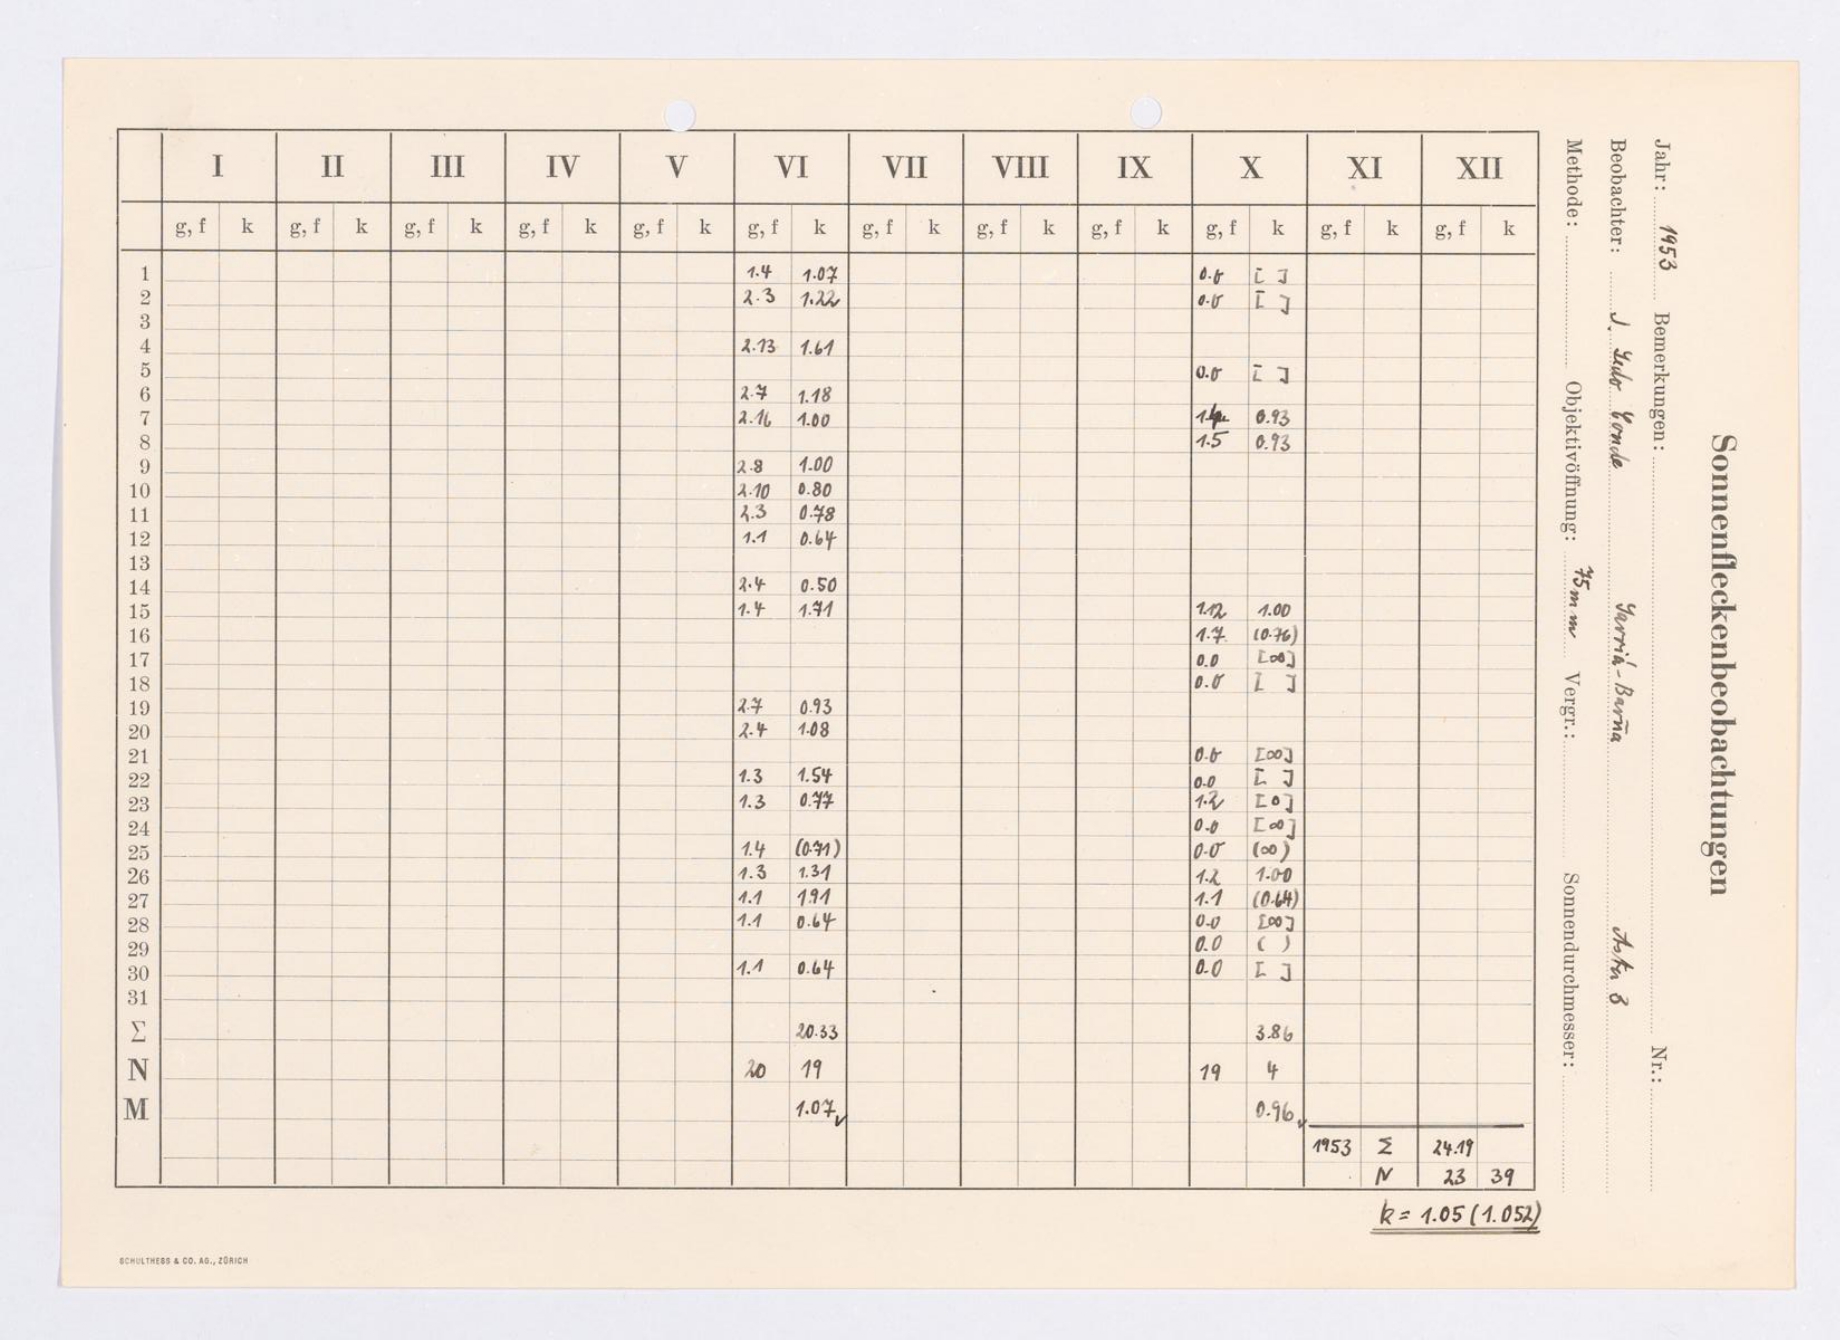 Sonnenfleckenbeobachtungen
Jahr: 1953 Bemerkungen: Nr.:
Beobachter: J. Conde Sarriá-Barña 3
Methode: Objektivöffnung: 75mm Vergr.: Sonnendurchmesser:
I II III IV V VI VII VIII IX X XI XII
g, f k g, f k g, f k g, f k g, f k g, f k g, f k g, f k g, f k g, f k g, f k g, f k
1 1.4 1.07 0.0 [ ]
2 2.3 1.22 0.0 [ ]
3
4 2.13 1.61
5 0.0 [ ]
6 2.7 1.18
7 2.16 1.00 0.93
8 1.5 0.93
9 2.8 1.00
10 2.10 0.80
11 2.3 0.78
12 1.1 0.64
13
14 2.4 0.50
15 1.4 1.71 1.12 1.00
16 1.7 (0.76)
17 0.0 [∞]
18 0.0 [ ]
19 2.7 0.93
20 2.4 1.08
21 0.0 [∞]
22 1.3 1.54 0.0 [ ]
23 1.3 0.77 1.2 [0]
24 0.0 [∞]
25 1.4 (0.71) 0.0 (∞)
26 1.3 1.31 1.2 1.00
27 1.1 1.91 1.1 (0.64)
28 1.1 0.64 0.0 [∞]
29 0.0 ( )
30 1.1 0.64 0.0 [ ]
31
Σ 20.33 3.86
N 20 19 19 4
M 1.07 0.96
1953 Σ 24.19
N 23 39
k = 1.05 (1.052)
SCHULTHESS & CO. AG., ZÜRICH